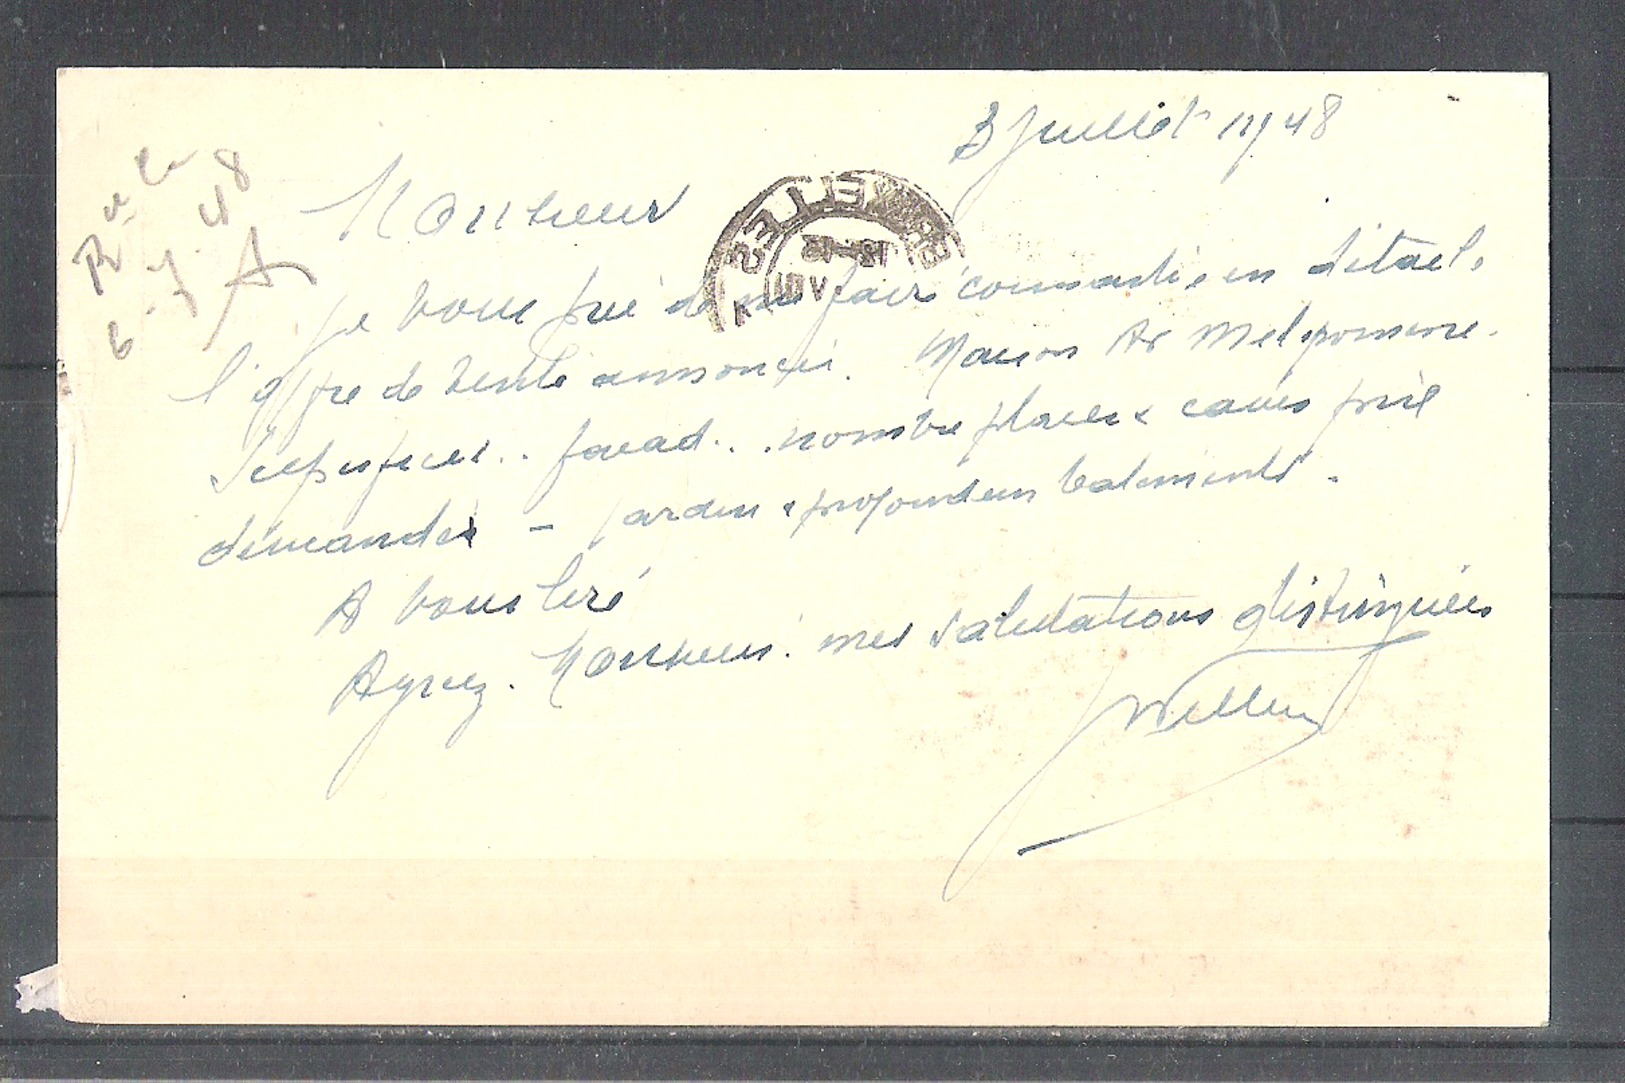 3 Juillet 1948
Rue le
6.7.48
Monsieur
BRUXELLES
je vous prie de me faire connaitre en détail.
l'offre de vente annoncée. Maison Av Melpomene.
Superficie.. facad.. nombre places & caves prix
demandés - jardin & profondeur batiments.
A vous lire
Agreez. Monsieur. mes salutations distinguées